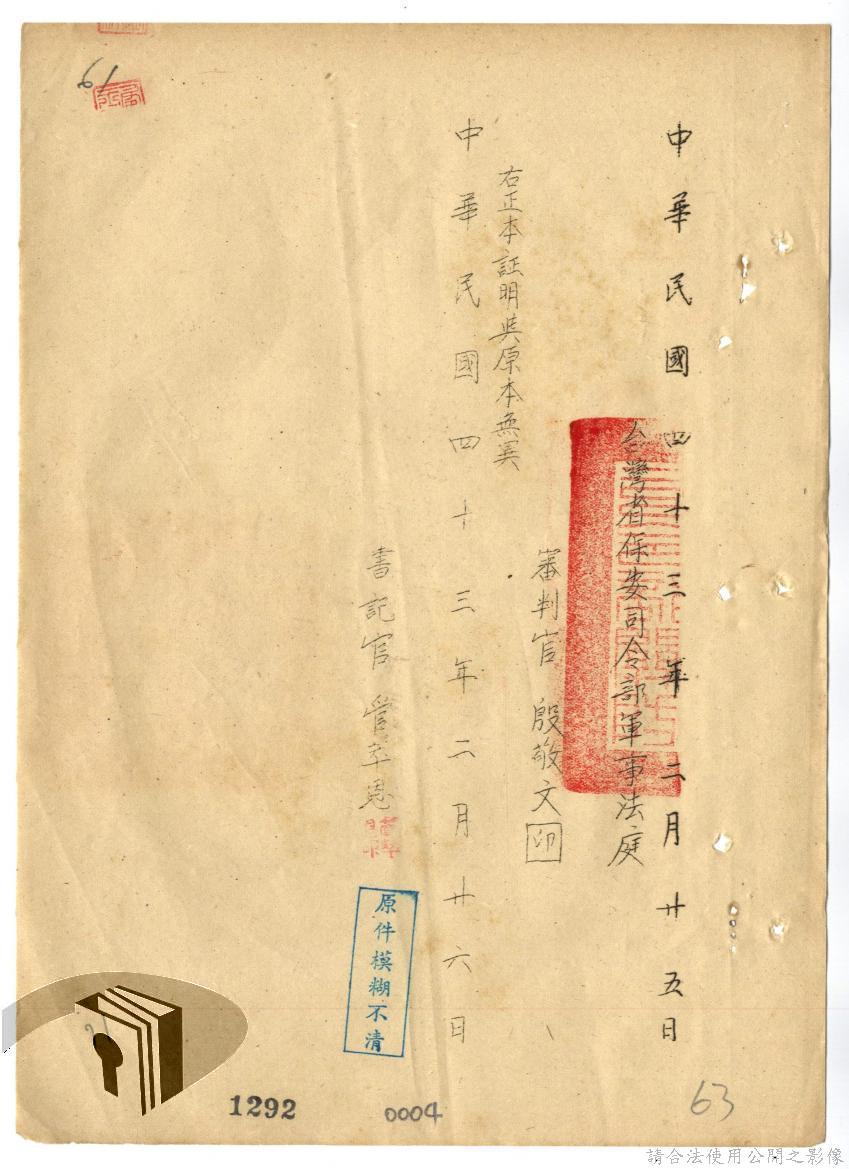 中華民國四十三年二月廿五日
台灣省保安司令部軍事法庭
審判官 殷敬文 印
右正本証明與原本無異
中華民國四十三年二月廿六日
書記官 管
原件模糊不清
61
1292
0004
63
請合法使用公開之影像